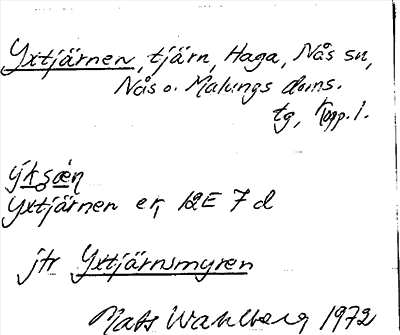 Yxtjärnen, tjärn, Haga, Nås sn,
Nås o. Malungs doms.
tg, Kopp. l.
ýksæ̀n
Yxtjärnen ek 12E 7d
jfr Yxtjärnsmyren
Mats Wahlberg 1972